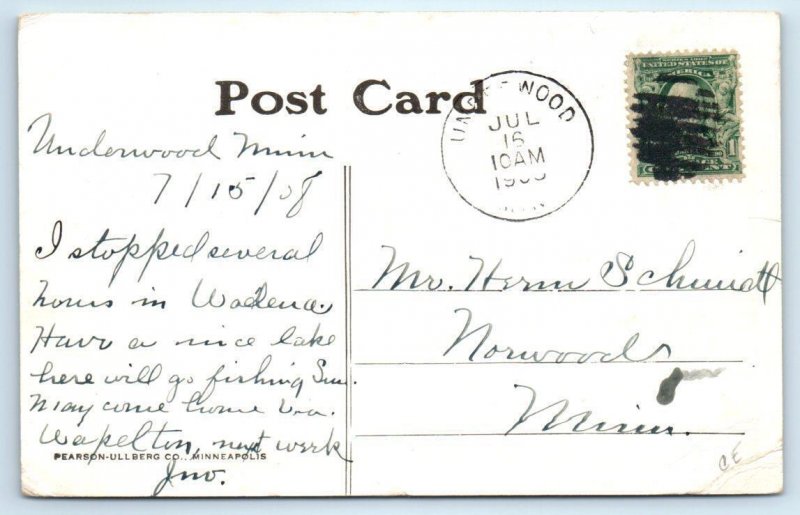 Post Card
UNDERWOOD
JUL
16
10AM
190
MINN
SERIES 1902
UNITED STATES OF
AMERICA
1
CENT
Underwood Minn
7/15/08
I stopped several
hours in Wadena.
Have a nice lake
here will go fishing Sun.
May come home Via.
Wapelton, next week
Jno.
PEARSON-ULLBERG CO., MINNEAPOLIS
Mr. Herm Schmidt
Norwood
Minn.